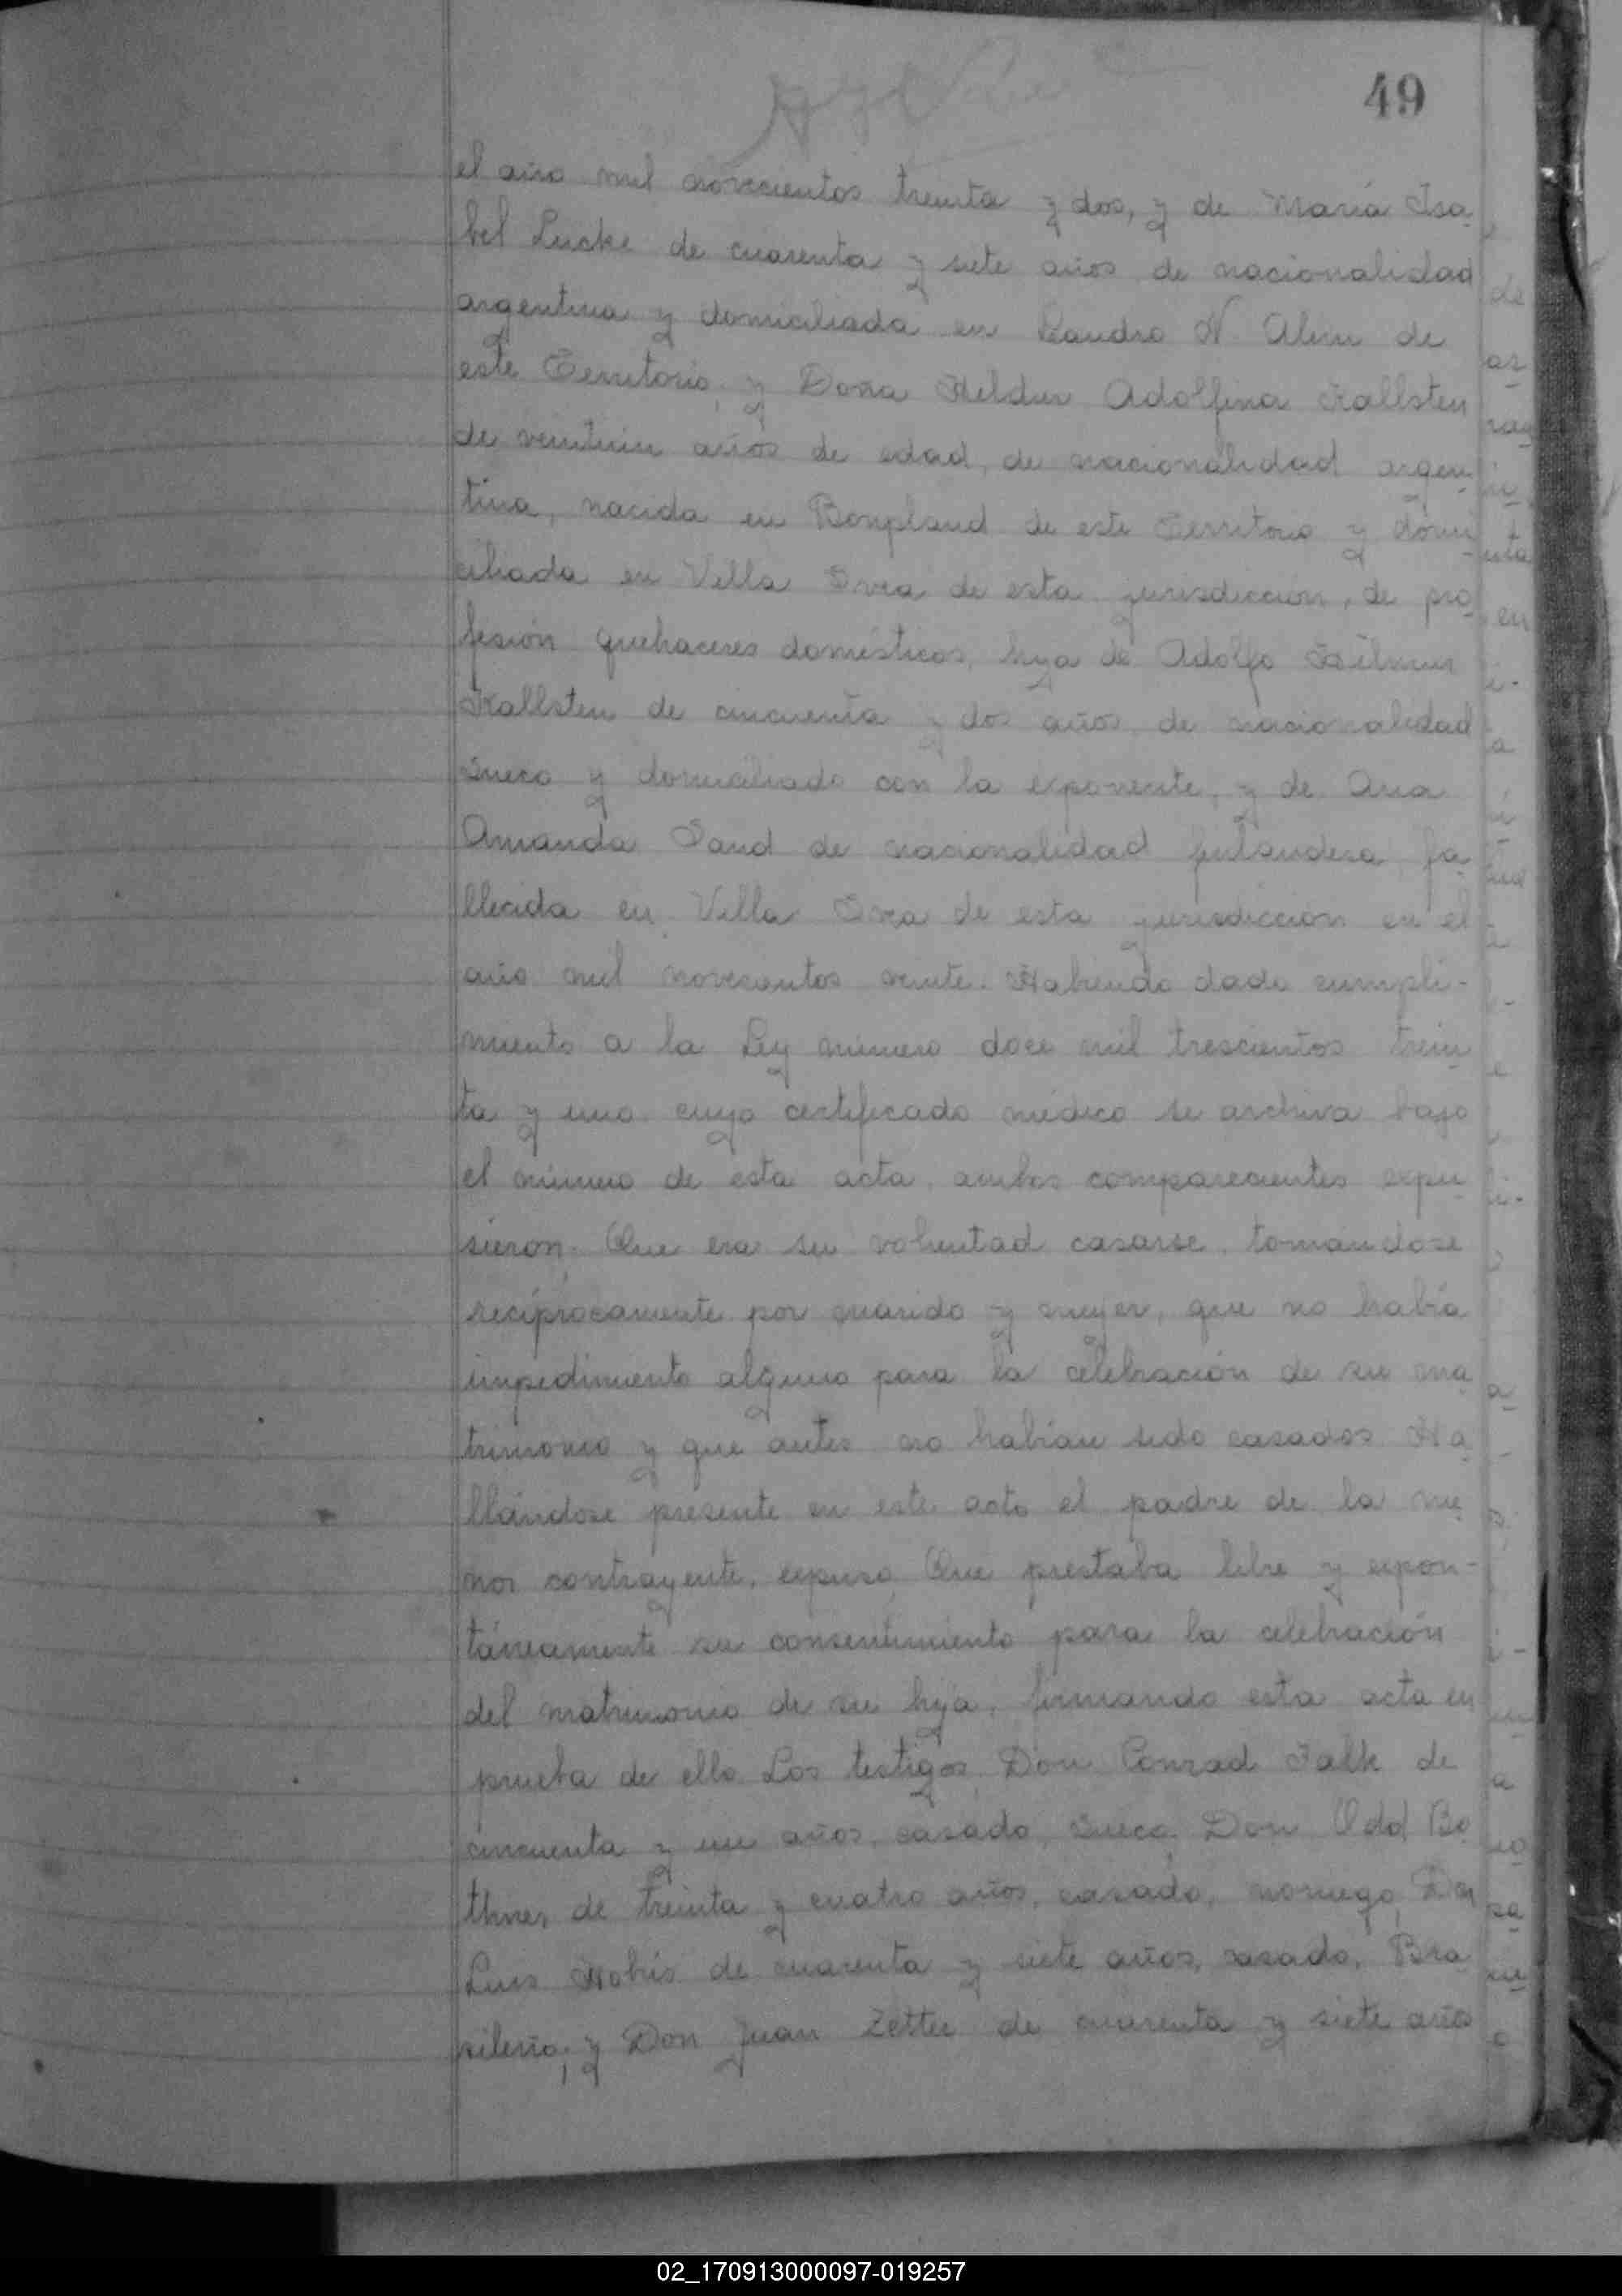 49
el año mil novecientos treinta y dos, y de María Isa
bel Lucke de cuarenta y siete años de nacionalidad
argentina y domiciliada en Leandro N. Alem de
este Territorio; y Doña Heldur Adolfina Kallsten
de veintiún años de edad, de nacionalidad argen
tina, nacida en Bonpland de este Territorio y domi
ciliada en Villa Svea de esta jurisdicción, de pro
fesión quehaceres domésticos, hija de Adolfo Hilmer
Kallsten de cincuenta y dos años, de nacionalidad
sueco y domiciliado con la exponente, y de Ana
Amanda Sand de nacionalidad finlandesa, fa
llecida en Villa Svea de esta jurisdicción en el
año mil novecientos veinte. Habiendo dado cumpli-
miento a la Ley número doce mil trescientos trein
ta y uno cuyo certificado médico se archiva bajo
el número de esta acta, ambos comparecientes expu
sieron: Que era su voluntad casarse, tomándose
recíprocamente por marido y mujer, que no había
impedimento alguno para la celebración de su ma
trimonio y que antes no habían sido casados. Ha
llándose presente en este acto el padre de la me
nor contrayente, expuso: Que prestaba libre y espon-
táneamente su consentimiento para la celebración
del matrimonio de su hija, firmando esta acta en
prueba de ello. Los testigos, Don Conrad Falk de
cincuenta y un años, casado, sueco; Don Odd Bo
thner, de treinta y cuatro años, casado, noruego; Don
Luis Nobis de cuarenta y siete años, casado, Bra
sileño; y Don Juan Zetter de cuarenta y siete años
02_170913000097-019257